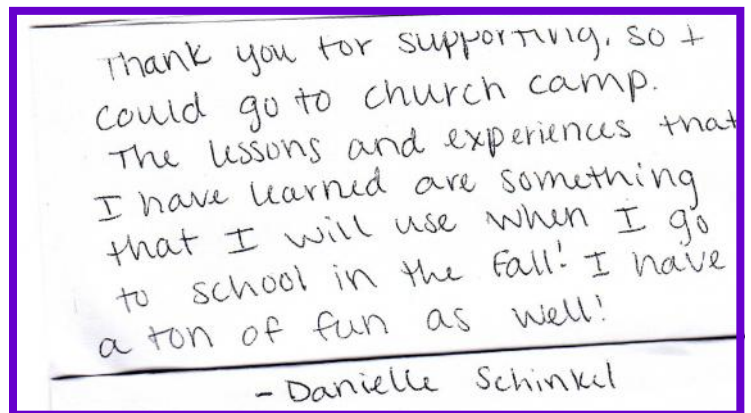 Thank you for supporting, so I
could go to church camp.
The lessons and experiences that
I have learned are something
that I will use when I go
to school in the Fall! I have
a ton of fun as well!
- Danielle Schinkel